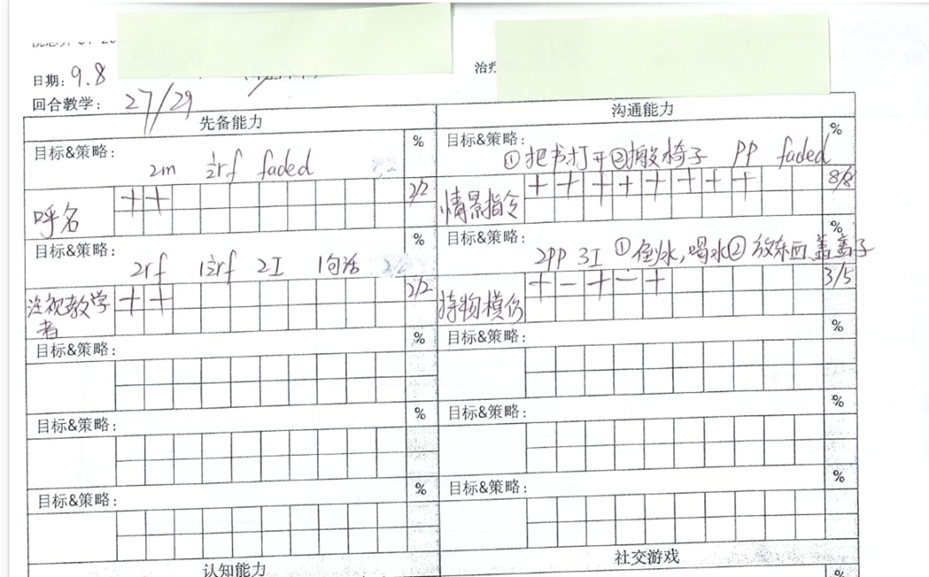 日期: 9.8
治疗
回合教学: 27/29
先备能力
目标&策略: %
2m ½rf faded
呼名 + + 2/2
目标&策略: %
2rf 1½rf 2I 1句话
注视教学者 + + 2/2
目标&策略: %
目标&策略: %
目标&策略: %
认知能力
沟通能力
目标&策略: %
①把书打开②搬椅子 PP faded
情景指令 + + + + + + + + 8/8
目标&策略: %
2PP 3I ①倒水,喝水②放东西盖盖子
持物模仿 + - + - + 3/5
目标&策略: %
目标&策略: %
目标&策略: %
社交游戏
%